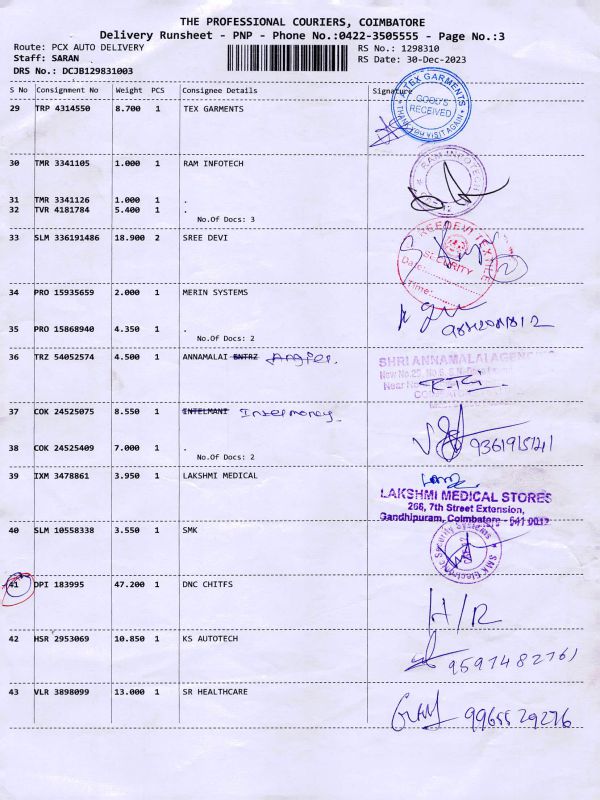 THE PROFESSIONAL COURIERS, COIMBATORE
Delivery Runsheet - PNP - Phone No.:0422-3505555 - Page No.:3
Route: PCX AUTO DELIVERY RS No.: 1298310
Staff: SARAN RS Date: 30-Dec-2023
DRS No.: DCJB129831003
S No Consignment No Weight PCS Consignee Details Signature
29 TRP 4314550 8.700 1 TEX GARMENTS
TEX GARMENTS
GOOD'S
RECEIVED
THANK YOU VISIT AGAIN
30 TMR 3341105 1.000 1 RAM INFOTECH
RAM INFOTECH
31 TMR 3341126 1.000 1 .
32 TVR 4181784 5.400 1 .
No.Of Docs: 3
33 SLM 336191486 18.900 2 SREE DEVI
SREEDEVI TEXTILE
SECURITY
Date:
Time:
2
34 PRO 15935659 2.000 1 MERIN SYSTEMS
35 PRO 15868940 4.350 1 .
No.Of Docs: 2
36 TRZ 54052574 4.500 1 ANNAMALAI ENTRZ
SHRI ANNAMALAI AGENCIES
37 COK 24525075 8.550 1 INTELMANI Intelmoney
38 COK 24525409 7.000 1 .
No.Of Docs: 2
39 IXM 3478861 3.950 1 LAKSHMI MEDICAL
LAKSHMI MEDICAL STORES
268, 7th Street Extension,
Gandhipuram, Coimbatore - 641 0012
40 SLM 10558338 3.550 1 SMK
SMK Electronic Security Systems
41 DPI 183995 47.200 1 DNC CHITFS
H/R
42 HSR 2953069 10.850 1 KS AUTOTECH
9597482761
43 VLR 3898099 13.000 1 SR HEALTHCARE
9965529276